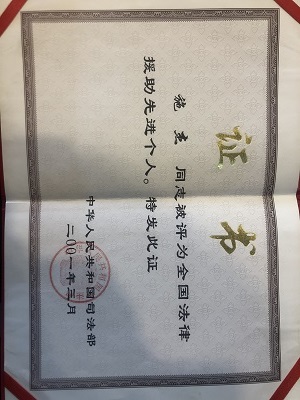 证书
施杰 同志被评为全国法律
援助先进个人。特发此证
中华人民共和国司法部
二〇〇一年三月